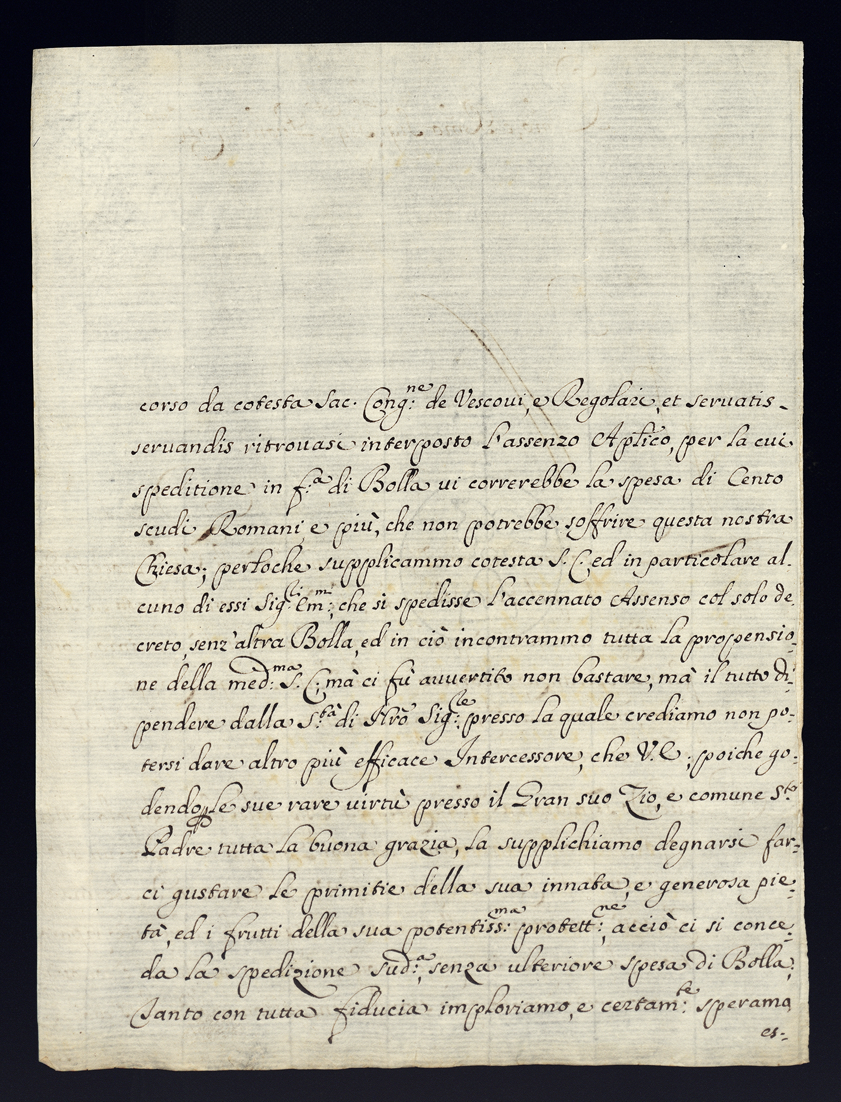 corso da cotesta Sac. Cong:ne de Vescovi, e Regolari, et servatis-
servandis ritrovasi interposto l'assenzo Aplico, per la cui
speditione in f:a di Bolla vi correrebbe la spesa di Cento
scudi Romani, e più, che non potrebbe soffrire questa nostra
Chiesa; perloche supplicammo cotesta S. C., ed in particolare al-
cuno di essi Sig:ri Em:mi, che si spedisse l'accennato Assenso col solo de-
creto, senz'altra Bolla, ed in ciò incontrammo tutta la propensio-
ne della med:ma S. C; mà ci fù avvertito non bastare, mà il tutto di-
pendere dalla S:tà di Nrò Sig:re, presso la quale crediamo non po-
tersi dare altro più efficace Intercessore, che V.E: poiche go-
dendo le sue rare virtù presso il Gran suo Zio, e comune S:to
Padre tutta la buona grazia, la supplichiamo degnarsi far-
ci gustare le primitie della sua innata, e generosa pie-
tà, ed i frutti della sua potentiss:ma protett:ne, acciò ci si conce-
da la spedizione sud:a, senza ulteriore spesa di Bolla;
Tanto con tutta fiducia imploriamo, e certam:te speramo,
es-